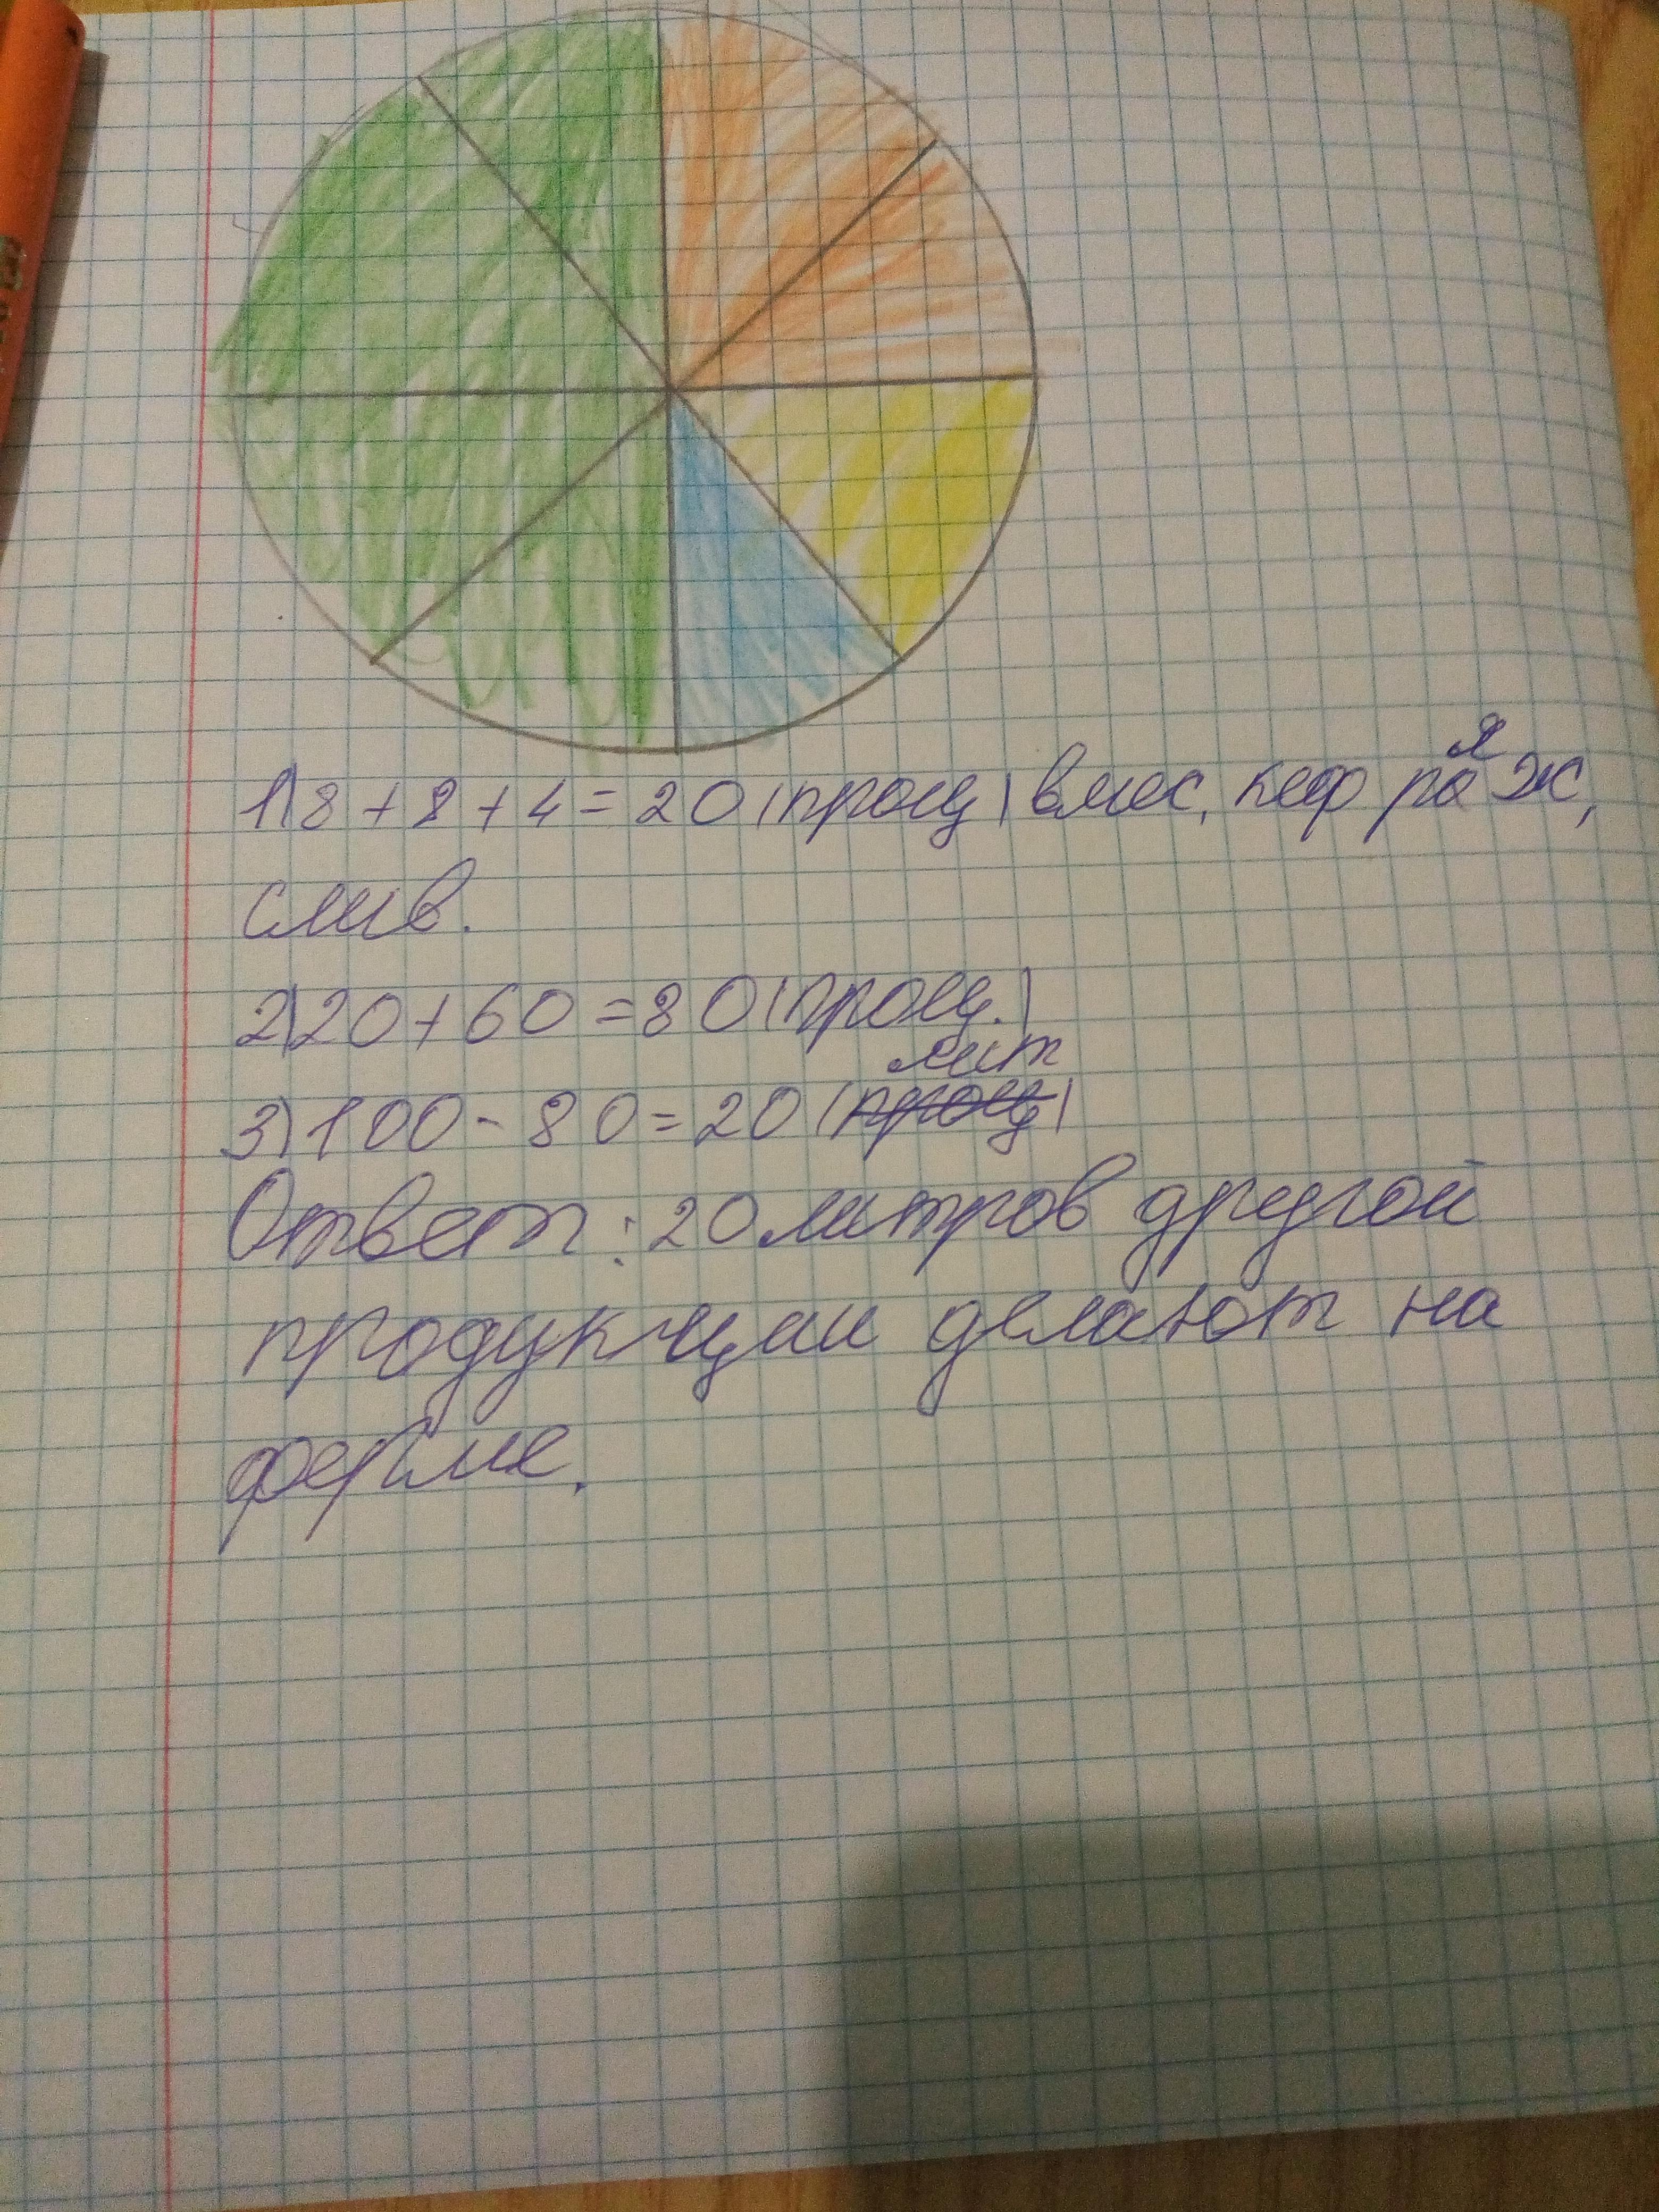 1) 8 + 8 + 4 = 20 (проц) вмес, кеф ряж,
слив.
2) 20 + 60 = 80 (проц.)
3) 100 - 80 = 20 (лит)
Ответ: 20 литров другой
продукции делают на
ферме.